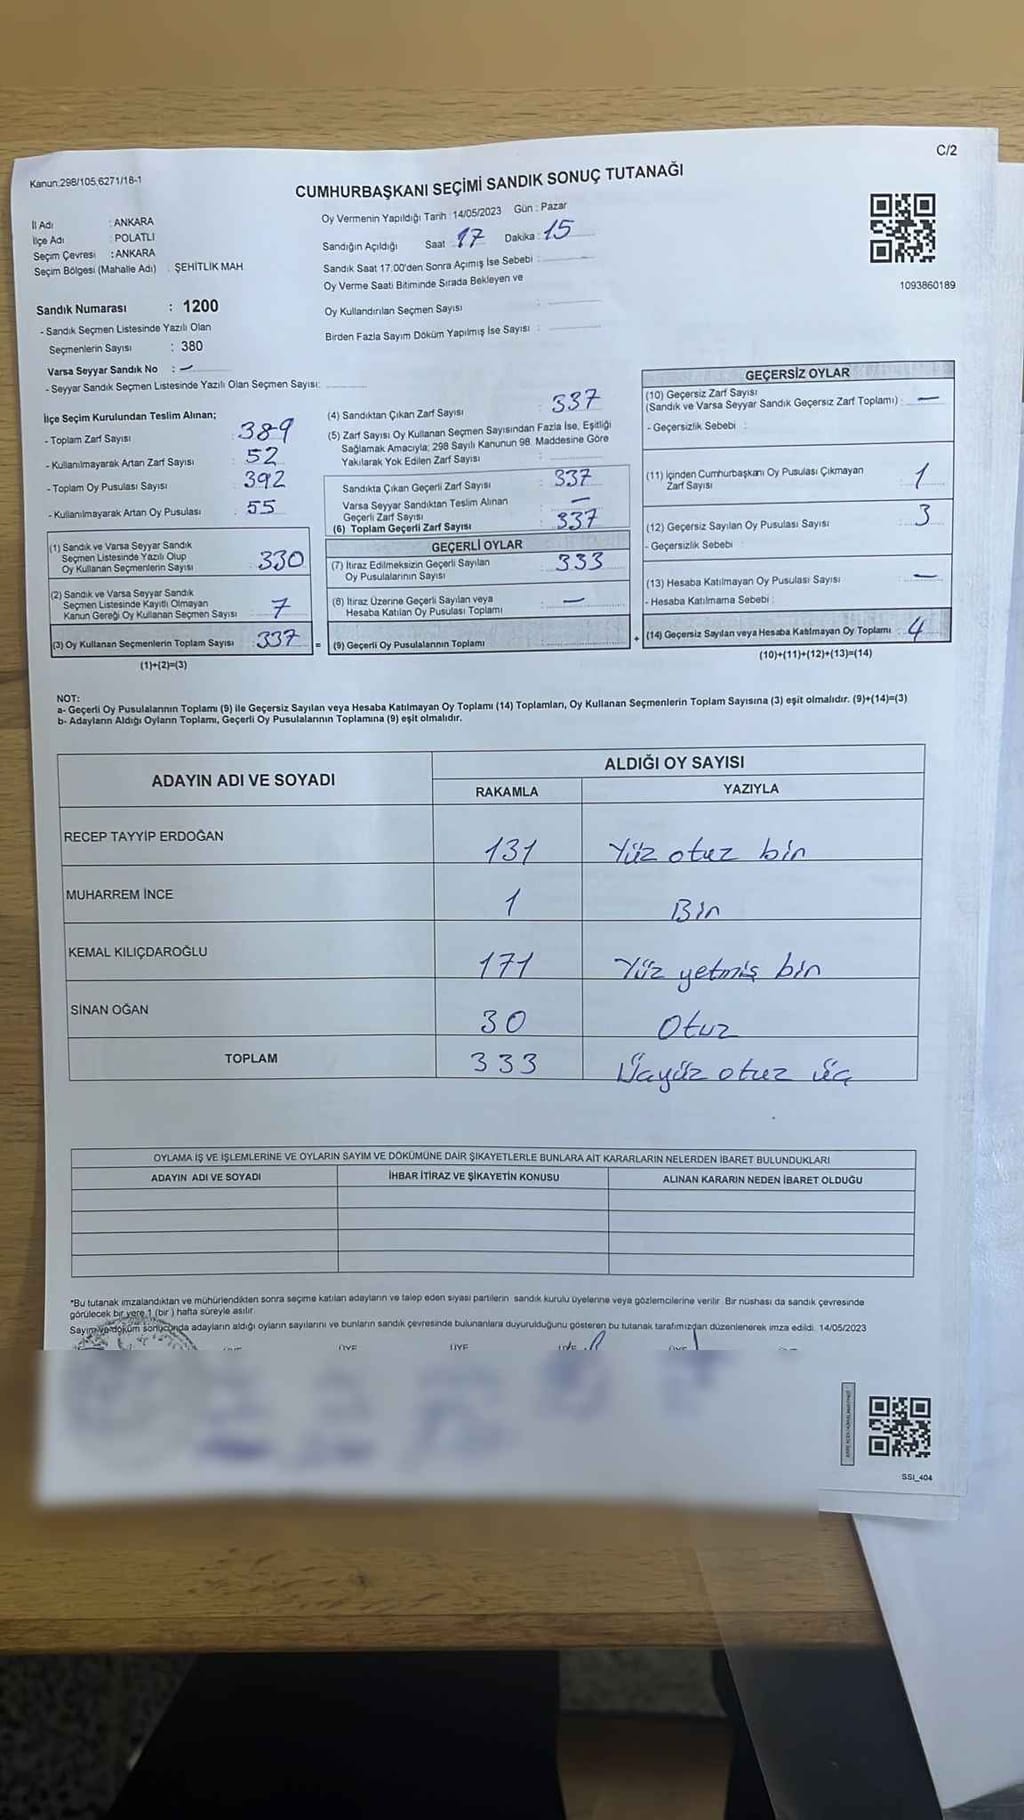 C/2
Kanun.298/105,6271/18-1
CUMHURBAŞKANI SEÇİMİ SANDIK SONUÇ TUTANAĞI
İl Adı : ANKARA
İlçe Adı : POLATLI
Seçim Çevresi : ANKARA
Seçim Bölgesi (Mahalle Adı) : ŞEHİTLİK MAH
Oy Vermenin Yapıldığı Tarih : 14/05/2023 Gün : Pazar
Sandığın Açıldığı Saat 17 Dakika : 15
Sandık Saat 17.00'den Sonra Açımış İse Sebebi :
Oy Verme Saati Bitiminde Sırada Bekleyen ve
Oy Kullandırılan Seçmen Sayısı :
Birden Fazla Sayım Döküm Yapılmış İse Sayısı :
1093860189
Sandık Numarası : 1200
- Sandık Seçmen Listesinde Yazılı Olan
Seçmenlerin Sayısı : 380
Varsa Seyyar Sandık No : —
- Seyyar Sandık Seçmen Listesinde Yazılı Olan Seçmen Sayısı:
İlçe Seçim Kurulundan Teslim Alınan;
- Toplam Zarf Sayısı : 389
- Kullanılmayarak Artan Zarf Sayısı : 52
- Toplam Oy Pusulası Sayısı : 392
- Kullanılmayarak Artan Oy Pusulası : 55
(1) Sandık ve Varsa Seyyar Sandık
Seçmen Listesinde Yazılı Olup
Oy Kullanan Seçmenlerin Sayısı : 330
(2) Sandık ve Varsa Seyyar Sandık
Seçmen Listesinde Kayıtlı Olmayan
Kanun Gereği Oy Kullanan Seçmen Sayısı : 7
(3) Oy Kullanan Seçmenlerin Toplam Sayısı : 337 =
(1)+(2)=(3)
(4) Sandıktan Çıkan Zarf Sayısı : 337
(5) Zarf Sayısı Oy Kullanan Seçmen Sayısından Fazla İse, Eşitliği
Sağlamak Amacıyla; 298 Sayılı Kanunun 98. Maddesine Göre
Yakılarak Yok Edilen Zarf Sayısı :
Sandıkta Çıkan Geçerli Zarf Sayısı : 337
Varsa Seyyar Sandıktan Teslim Alınan
Geçerli Zarf Sayısı : —
(6) Toplam Geçerli Zarf Sayısı : 337
GEÇERLİ OYLAR
(7) İtiraz Edilmeksizin Geçerli Sayılan
Oy Pusulalarının Sayısı : 333
(8) İtiraz Üzerine Geçerli Sayılan veya
Hesaba Katılan Oy Pusulası Toplamı : —
(9) Geçerli Oy Pusulalarının Toplamı : +
GEÇERSİZ OYLAR
(10) Geçersiz Zarf Sayısı
(Sandık ve Varsa Seyyar Sandık Geçersiz Zarf Toplamı) : —
- Geçersizlik Sebebi :
(11) İçinden Cumhurbaşkanı Oy Pusulası Çıkmayan
Zarf Sayısı : 1
(12) Geçersiz Sayılan Oy Pusulası Sayısı : 3
- Geçersizlik Sebebi :
(13) Hesaba Katılmayan Oy Pusulası Sayısı : —
- Hesaba Katılmama Sebebi :
(14) Geçersiz Sayılan veya Hesaba Katılmayan Oy Toplamı : 4
(10)+(11)+(12)+(13)=(14)
NOT:
a- Geçerli Oy Pusulalarının Toplamı (9) ile Geçersiz Sayılan veya Hesaba Katılmayan Oy Toplamı (14) Toplamları, Oy Kullanan Seçmenlerin Toplam Sayısına (3) eşit olmalıdır. (9)+(14)=(3)
b- Adayların Aldığı Oyların Toplamı, Geçerli Oy Pusulalarının Toplamına (9) eşit olmalıdır.
ADAYIN ADI VE SOYADI
ALDIĞI OY SAYISI
RAKAMLA YAZIYLA
RECEP TAYYİP ERDOĞAN 131 Yüz otuz bir
MUHARREM İNCE 1 Bir
KEMAL KILIÇDAROĞLU 171 Yüz yetmiş bir
SİNAN OĞAN 30 Otuz
TOPLAM 333 Üçyüz otuz üç
OYLAMA İŞ VE İŞLEMLERİNE VE OYLARIN SAYIM VE DÖKÜMÜNE DAİR ŞİKAYETLERLE BUNLARA AİT KARARLARIN NELERDEN İBARET BULUNDUKLARI
ADAYIN ADI VE SOYADI İHBAR İTİRAZ VE ŞİKAYETİN KONUSU ALINAN KARARIN NEDEN İBARET OLDUĞU
*Bu tutanak imzalandıktan ve mühürlendikten sonra seçime katılan adayların ve talep eden siyasi partilerin sandık kurulu üyelerine veya gözlemcilerine verilir. Bir nüshası da sandık çevresinde
görülecek bir yere 1 (bir ) hafta süreyle asılır.
Sayım ve döküm sonucunda adayların aldığı oyların sayılarını ve bunların sandık çevresinde bulunanlara duyurulduğunu gösteren bu tutanak tarafımızdan düzenlenerek imza edildi. 14/05/2023
ÜYE ÜYE
SSI_404